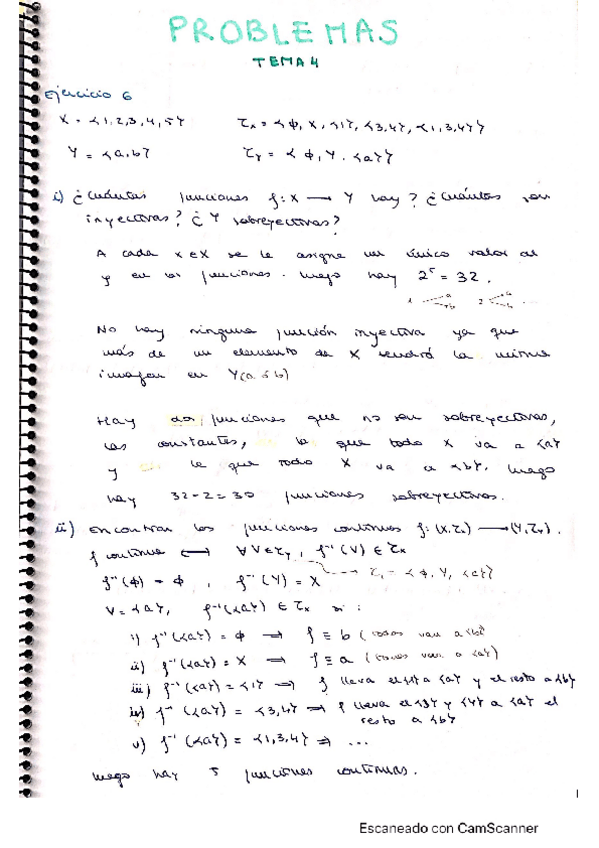 PROBLEMAS
TEMA 4
Ejercicio 6
X = {1,2,3,4,5}   τx = {ϕ, X, {1}, {3,4}, {1,3,4}}
Y = {a,b}   τy = {ϕ, Y, {a}}
i) ¿Cuántas funciones f: X → Y hay? ¿Cuántas son
inyectivas? ¿Y sobreyectivas?
A cada x ∈ X se le asigna un único valor de
y en las funciones. Luego hay 2⁵ = 32.
1 < a b   2 < a b ...
No hay ninguna función inyectiva ya que
más de un elemento de X tendrá la misma
imagen en Y (a ó b)
Hay dos funciones que no son sobreyectivas,
las constantes, la que todo X va a {a}
y la que todo X va a {b}. Luego
hay 32-2=30 funciones sobreyectivas.
ii) Encontrar las funciones continuas f: (X,τx) → (Y,τy).
f continua ⟺ ∀V∈τy, f⁻¹(V) ∈ τx
f⁻¹(ϕ) = ϕ , f⁻¹(Y) = X → τy = {ϕ, Y, {a}}
V = {a}, f⁻¹({a}) ∈ τx si:
i) f⁻¹({a}) = ϕ ⇒ f ≡ b (todos van a {b})
ii) f⁻¹({a}) = X ⇒ f ≡ a (todos van a {a})
iii) f⁻¹({a}) = {1} ⇒ f lleva el {1} a {a} y el resto a {b}
iv) f⁻¹({a}) = {3,4} ⇒ f lleva el {3} y {4} a {a} el
resto a {b}
v) f⁻¹({a}) = {1,3,4} ⇒ ...
Luego hay 5 funciones continuas.
1
Escaneado con CamScanner